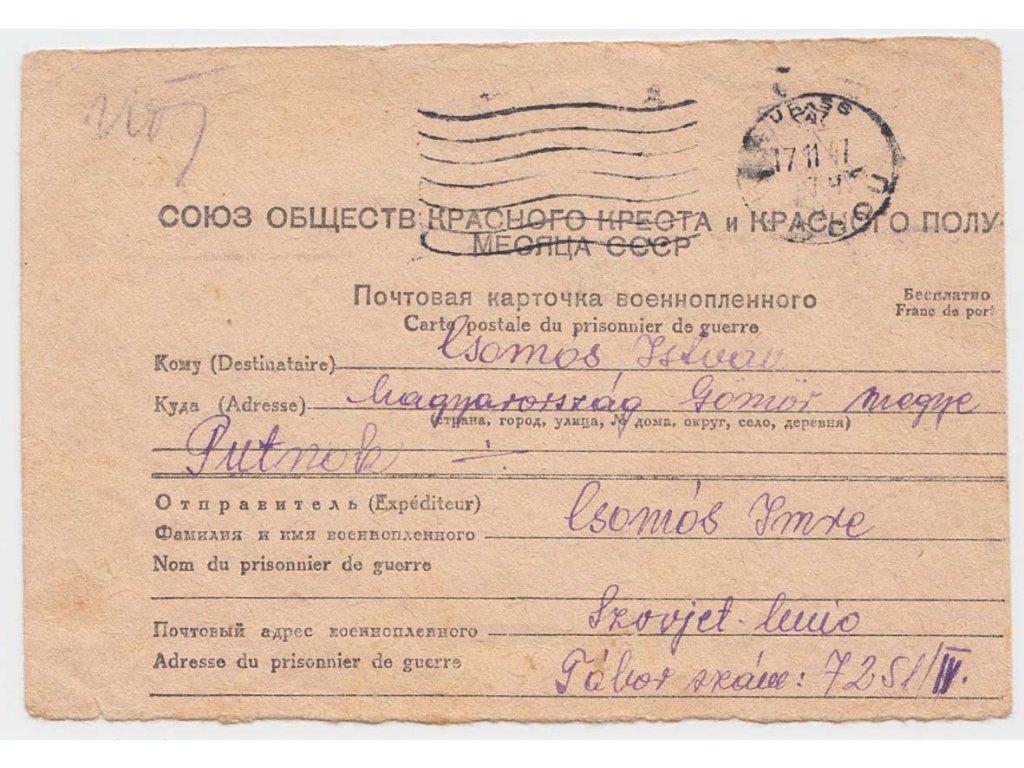 17 11 47
СОЮЗ ОБЩЕСТВ КРАСНОГО КРЕСТА и КРАСНОГО ПОЛУ-
МЕСЯЦА СССР
Почтовая карточка военнопленного
Бесплатно
Carte postale du prisonnier de guerre
Franc de port
Кому (Destinataire) Csomós István
Куда (Adresse) Magyarország Gömör megye
(страна, город, улица, № дома, округ, село, деревня)
Putnok
Отправитель (Expéditeur)
Фамилия и имя военнопленного Csomós Imre
Nom du prisonnier de guerre
Почтовый адрес военнопленного Szovjet-Unio
Adresse du prisonnier de guerre Tábor szám: 7251/IV.